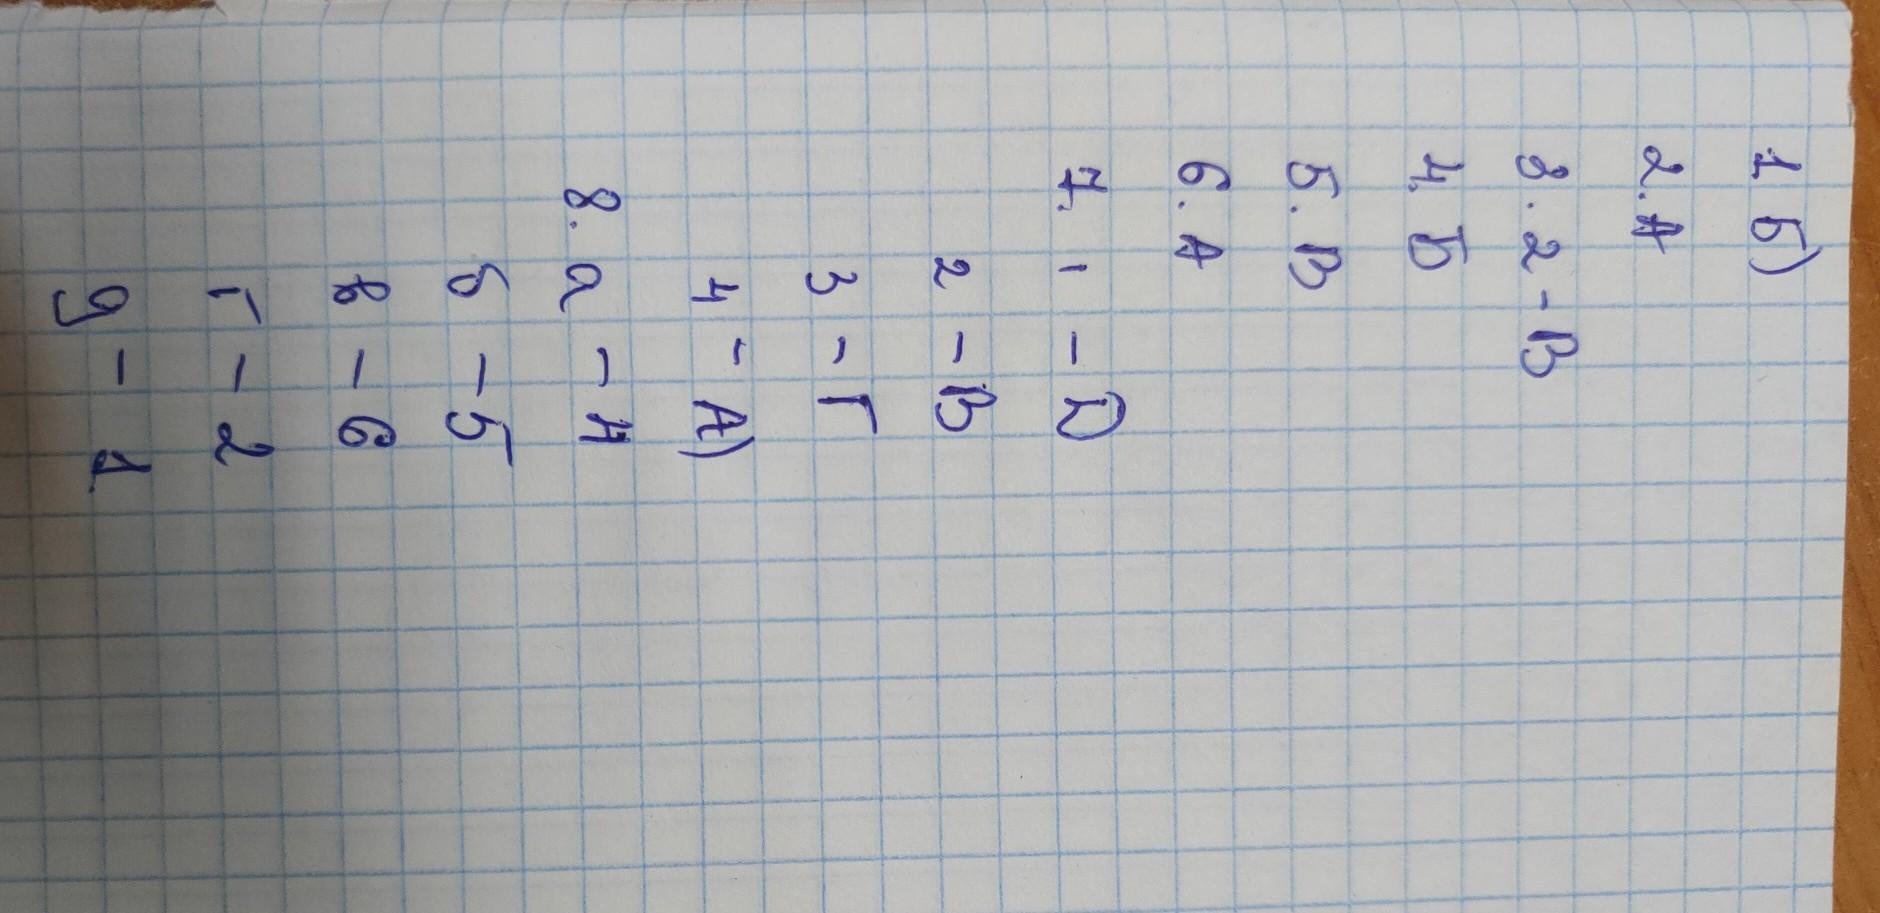 1. Б)
2. А
3. 2 - В
4. Б
5. В
6. А
7. 1 - Д
2 - В
3 - Г
4 - А)
8. а - 4
б - 5
в - 6
г - 2
д - 1